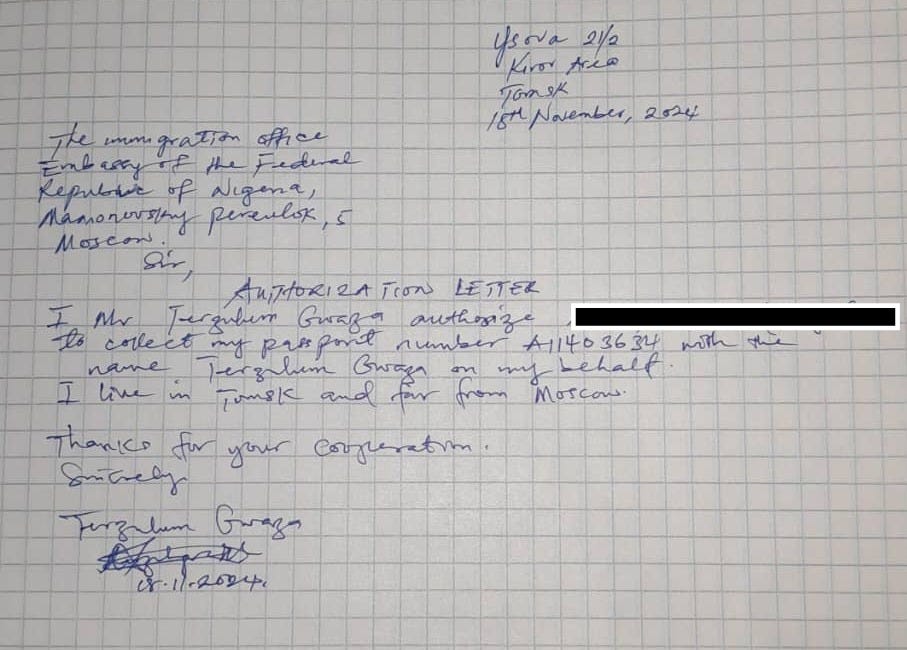 Ysova 21/2
Kirov Area
Tomsk
18th November, 2024
The immigration office
Embassy of the Federal
Republic of Nigeria,
Mamonovsky pereulok, 5
Moscow.
Sir,
AUTHORIZATION LETTER
I Mr Terzulum Gwaza authorize
to collect my passport number A11403634 with the
name Terzulum Gwaza on my behalf.
I live in Tomsk and far from Moscow.
Thanks for your cooperation.
Sincerely
Terzulum Gwaza
18.11.2024.